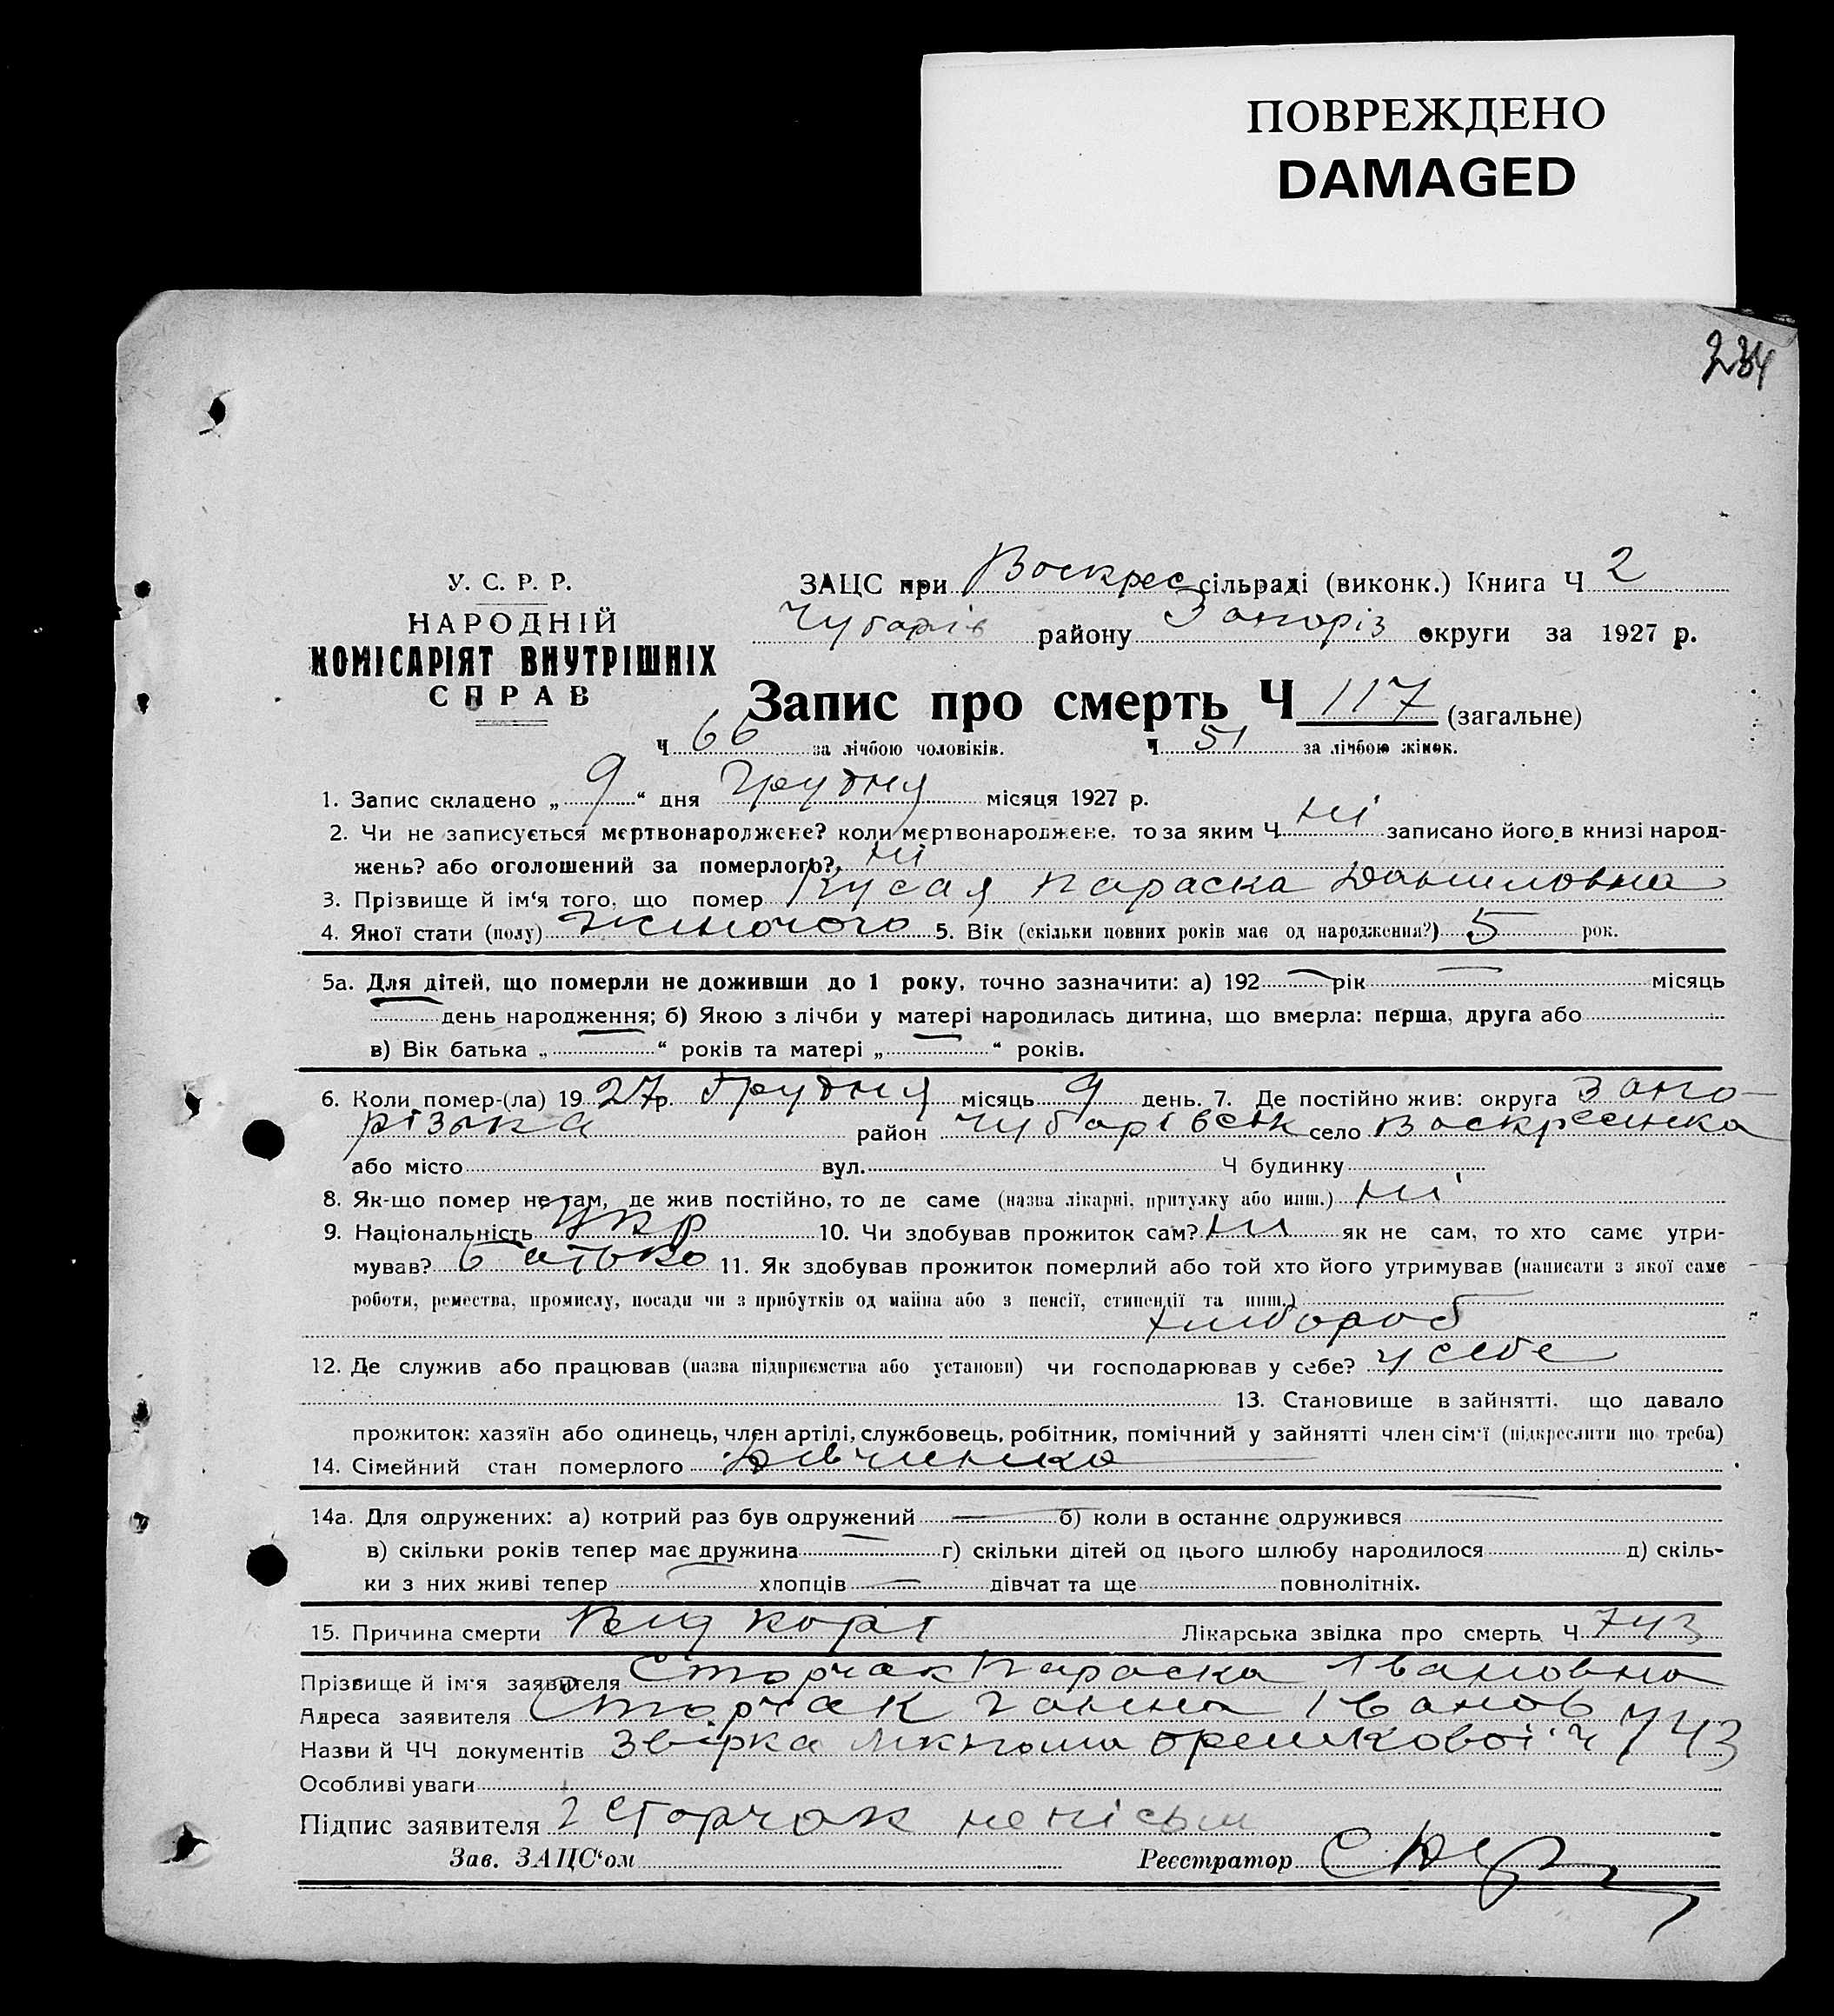 ПОВРЕЖДЕНО
DAMAGED
234
У. С. Р. Р.
НАРОДНІЙ
КОМІСАРІЯТ ВНУТРІШНІХ
СПРАВ
ЗАЦС при Воскрес сільраді (виконк.) Книга Ч 2
Чубарів району Запоріз округи за 1927 р.
Запис про смерть Ч 117 (загальне)
Ч 66 за лічбою чоловіків. Ч 51 за лічбою жінок.
1. Запис складено „ 9 “ дня Грудня місяця 1927 р.
2. Чи не записується мертвонароджене? коли мертвонароджене, то за яким Ч ні записано його в книзі народ-
жень? або оголошений за померлого? ні
3. Прізвище й ім‘я того, що помер Кусая Параска Даниловна
4. Якої стати (полу) жиночого 5. Вік (скільки повних років має од народження?) 5 рок.
5а. Для дітей, що померли не доживши до 1 року, точно зазначити: а) 192 рік місяць
день народження; б) Якою з лічби у матері народилась дитина, що вмерла: перша, друга або
в) Вік батька „ “ років та матері „ “ років.
6. Коли помер-(ла) 19 27 р. Грудня місяць 9 день. 7. Де постійно жив: округа Запо-
різька район Чубарівськ село Воскресенка
або місто вул. Ч будинку
8. Як-що помер не там, де жив постійно, то де саме (назва лікарні, притулку або инш.) ні
9. Національність Укр 10. Чи здобував прожиток сам? ни як не сам, то хто саме утри-
мував? батько 11. Як здобував прожиток померлий або той хто його утримував (написати з якої саме
роботи, ремества, промислу, посади чи з прибутків од майна або з пенсії, стипендії та инш.)
хлибороб
12. Де служив або працював (назва підприємства або установи) чи господарював у себе? у себе
13. Становище в зайнятті, що давало
прожиток: хазяїн або одинець, член артілі, службовець, робітник, помічний у зайнятті член сім‘ї (підкреслити що треба)
14. Сімейний стан померлого дівчинка
14а. Для одружених: а) котрий раз був одружений б) коли в останнє одружився
в) скільки років тепер має дружина г) скільки дітей од цього шлюбу народилося д) скіль-
ки з них живі тепер хлопців дівчат та ще повнолітніх.
15. Причина смерти Вид корі Лікарська звідка про смерть Ч 743
Прізвище й ім‘я заявителя Сторчак Параска Івановна
Адреса заявителя Сторчак Ганна Іванов
Назви й ЧЧ документів Звірка Орешковоі Ч 743
Особливі уваги
Підпис заявителя Сторчак
Зав. ЗАЦС‘ом Реєстратор